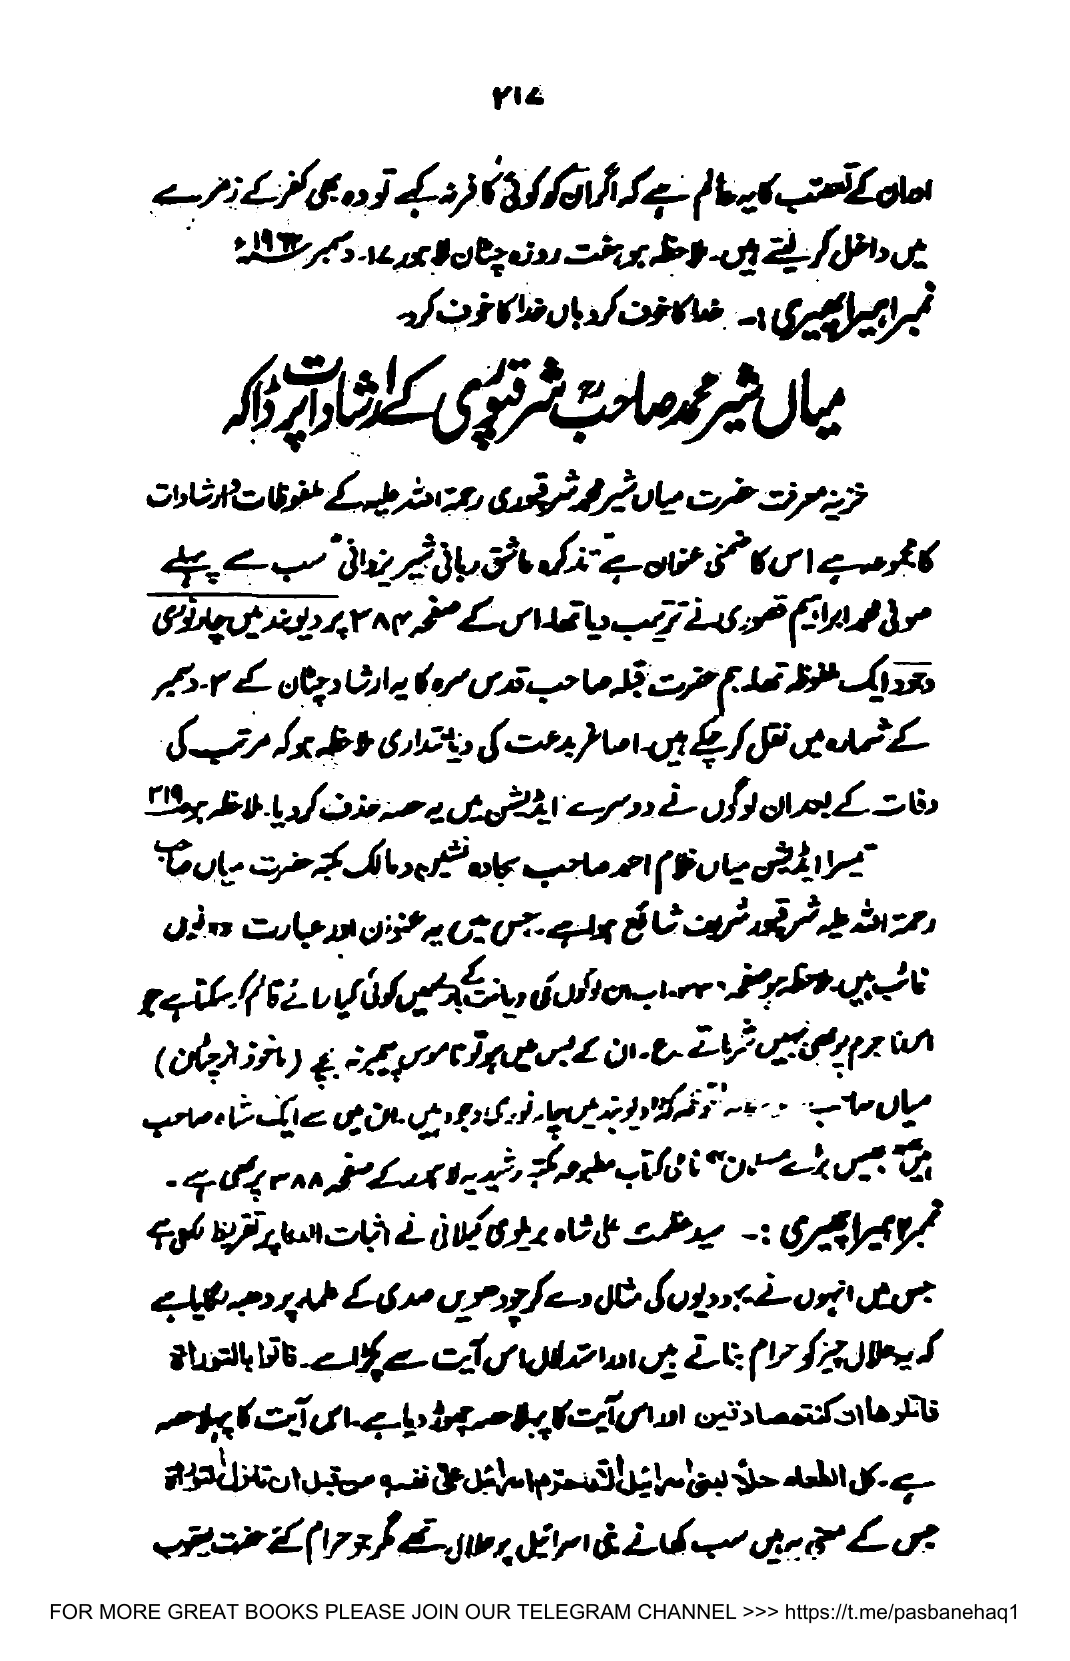 ۲۱۷
اور ان کے تعصب کا یہ عالم ہے کہ اگر ان کو کوئی کافر نہ کہے تو وہ بھی کفر کے زمرے
میں داخل کر لیتے ہیں۔ ملاحظہ ہو ہفت روزہ چٹان لاہور ۱۷۔ دسمبر ۱۹۶۲ء
نمبر۱ ہیرا پھیری :۔ خدا کا خوف کرو ہاں خدا کا خوف کرو۔
میاں شیر محمد صاحبؒ شرقپوری کے ارشادات پر ڈاکہ
خزینہ معرفت حضرت میاں شیر محمد شرقپوری رحمۃ اللہ علیہ کے ملفوظات و ارشادات
کا مجموعہ ہے اس کا ضمنی عنوان ہے "تذکرہ عاشق ربانی شیر یزدانی" سب سے پہلے
صوفی محمد ابراہیم قصوری نے ترتیب دیا تھا۔ اس کے صفحہ ۳۸۴ پر دیوبند میں چار نوری
وجود ایک ملفوظ تھا۔ ہم حضرت قبلہ صاحب قدس سرہ کا یہ ارشاد چٹان کے ۳۔ دسمبر
کے شمارہ میں نقل کر چکے ہیں۔ اصاغر بدعت کی دیانتداری ملاحظہ ہو کہ مرتب کی
وفات کے بعد ان لوگوں نے دوسرے ایڈیشن میں یہ حصہ حذف کر دیا۔ ملاحظہ ہو ص۲۱۹
تیسرا ایڈیشن میاں غلام احمد صاحب سجادہ نشین و مالک مکتبہ حضرت میاں صاحب
رحمۃ اللہ علیہ شرقپور شریف شائع ہوا ہے۔ جس میں یہ عنوان اور عبارت دونوں
غائب ہیں۔ ملاحظہ ہو صفحہ ۲۳۰۔ اب ان لوگوں کی دیانت کے بارے میں کوئی کیا رائے قائم کر سکتا ہے جو
اتنا جرم پر بھی نہیں شرماتے۔ ع۔ ان کے بس میں ہو تو ناموس پیمبر نہ بچے (ماخوذ از چٹان)
میاں صاحب کہ "دیوبند میں چار نوری وجود ہیں۔ ان میں سے ایک شاہ صاحب
ہیں" بیس بڑے مسلمان" نامی کتاب مطبوعہ مکتبہ رشیدیہ لاہور کے صفحہ ۳۸۸ پر بھی ہے۔
نمبر۲ ہیرا پھیری :۔ سید عظمت علی شاہ بریلوی گیلانی نے اثبات الدعا پر تقریظ لکھی ہے
جس میں انہوں نے یہودیوں کی مثال دے کر چودھویں صدی کے علماء پر دھبہ لگایا ہے
کہ یہ حلال چیز کو حرام بناتے ہیں اور استدلال اس آیت سے پکڑا ہے۔ فاتوا بالتوراۃ
فاتلوھا ان کنتم صادقین اور اس آیت کا پہلا حصہ چھوڑ دیا ہے۔ اس آیت کا پہلا حصہ
ہے۔ کل الطعام حلاً لبنی اسرائیل الا ما حرم اسرائیل علی نفسہ من قبل ان تنزل التوراۃ
جس کے معنی یہ ہیں سب کھانے بنی اسرائیل پر حلال تھے مگر جو حرام کئے حضرت یعقوب
FOR MORE GREAT BOOKS PLEASE JOIN OUR TELEGRAM CHANNEL >>> https://t.me/pasbanehaq1